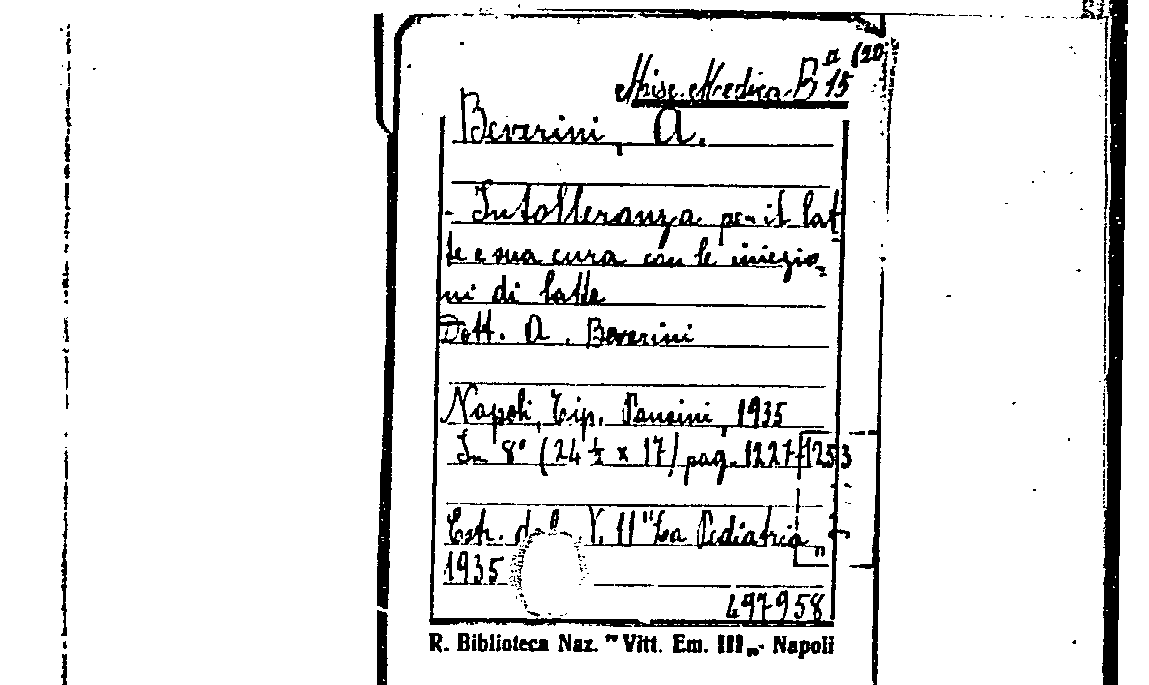 Misc. Medica. B 15 a (20
Beverini, A.
- Intolleranza per il lat
te e sua cura con le iniezio=
ni di latte
Dott. A. Beverini
Napoli, Tip. Pansini, 1935
In 8° (24 ½ x 17) pag. 1227-1253
Estr. dal N. 11 "La Pediatria„
1935
497958
R. Biblioteca Naz. "Vitt. Em. III„- Napoli